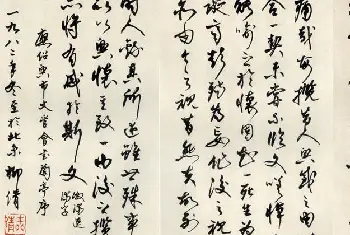 痛哉每攬昔人興感之由
合一契未嘗不臨文嗟悼
能喻之於懷固知一死生為
誕齊彭殤為妄作後之視
亦由今之視昔悲夫故列
時人錄其所述雖世殊事
所以興懷其致一也後之攬
亦將有感於斯文
應紹興市文學會書蘭亭序
一九八年冬至於北京 柳倩